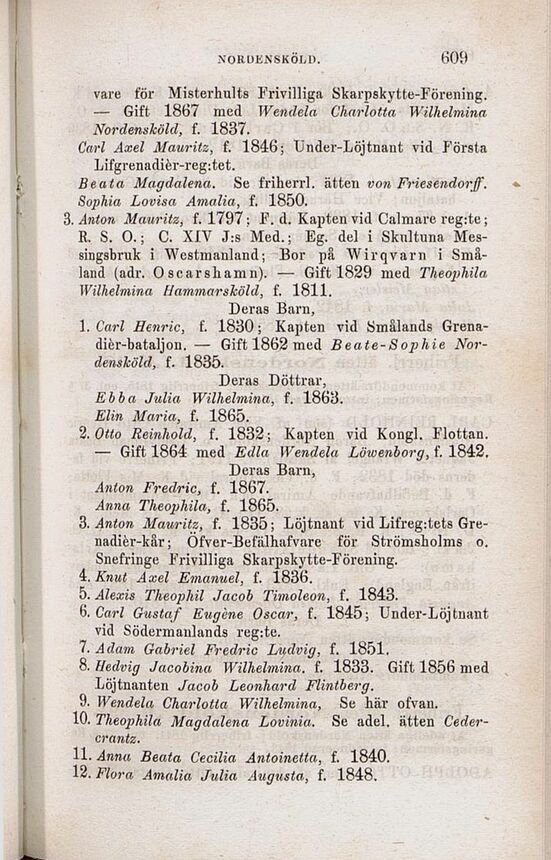 NORDENSKÖLD. 609
vare för Misterhults Frivilliga Skarpskytte-Förening.
— Gift 1867 med Wendela Charlotta Wilhelmina
Nordensköld, f. 1837.
Carl Axel Mauritz, f. 1846; Under-Löjtnant vid Första
Lifgrenadièr-reg:tet.
Beata Magdalena. Se friherrl. ätten von Friesendorff.
Sophia Lovisa Amalia, f. 1850.
3. Anton Mauritz, f. 1797; F. d. Kapten vid Calmare reg:te;
R. S. O.; C. XIV J:s Med.; Eg. del i Skultuna Mes-
singsbruk i Westmanland; Bor på Wirqvarn i Små-
land (adr. Oscarshamn). — Gift 1829 med Theophila
Wilhelmina Hammarsköld, f. 1811.
Deras Barn,
1. Carl Henric, f. 1830; Kapten vid Smålands Grena-
dièr-bataljon. — Gift 1862 med Beate-Sophie Nor-
densköld, f. 1835.
Deras Döttrar,
Ebba Julia Wilhelmina, f. 1863.
Elin Maria, f. 1865.
2. Otto Reinhold, f. 1832; Kapten vid Kongl. Flottan.
— Gift 1864 med Edla Wendela Löwenborg, f. 1842.
Deras Barn,
Anton Fredric, f. 1867.
Anna Theophila, f. 1865.
3. Anton Mauritz, f. 1835; Löjtnant vid Lifreg:tets Gre-
nadièr-kår; Öfver-Befälhafvare för Strömsholms o.
Snefringe Frivilliga Skarpskytte-Förening.
4. Knut Axel Emanuel, f. 1836.
5. Alexis Theophil Jacob Timoleon, f. 1843.
6. Carl Gustaf Eugène Oscar, f. 1845; Under-Löjtnant
vid Södermanlands reg:te.
7. Adam Gabriel Fredric Ludvig, f. 1851.
8. Hedvig Jacobina Wilhelmina. f. 1833. Gift 1856 med
Löjtnanten Jacob Leonhard Flintberg.
9. Wendela Charlotta Wilhelmina, Se här ofvan.
10. Theophila Magdalena Lovinia. Se adel. ätten Ceder-
crantz.
11. Anna Beata Cecilia Antoinetta, f. 1840.
12. Flora Amalia Julia Augusta, f. 1848.